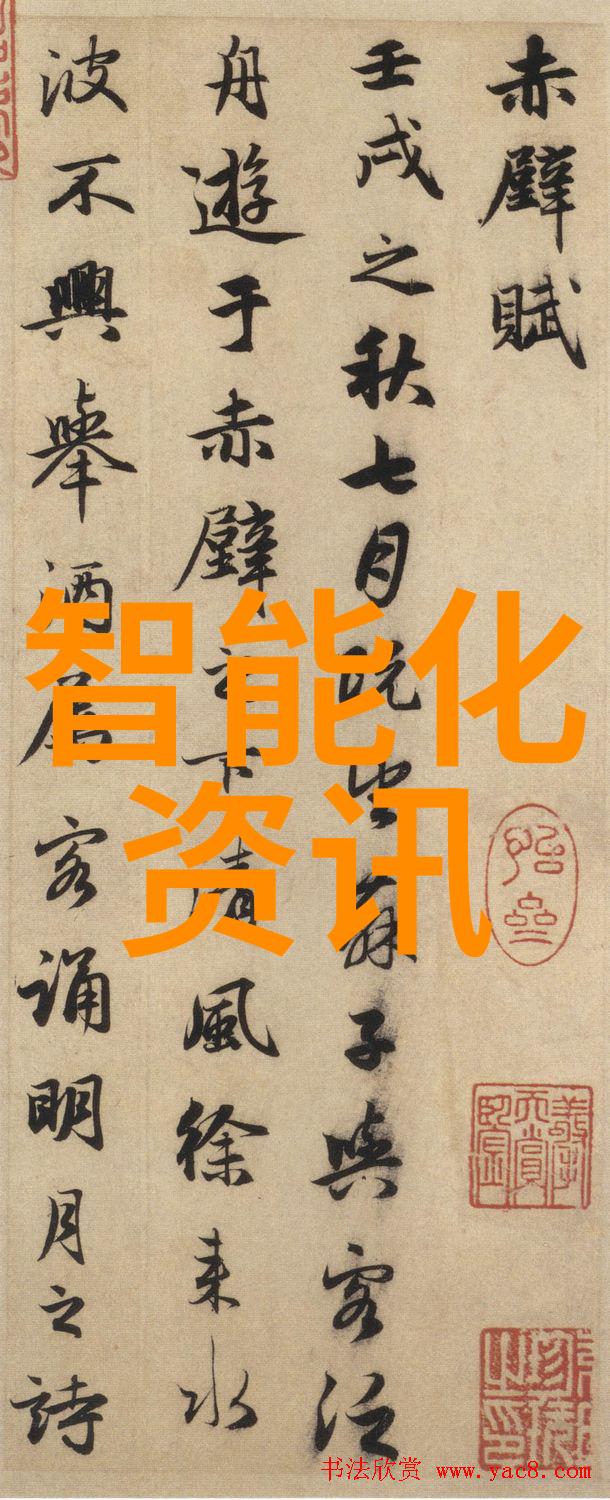 赤壁賦
壬戌之秋七月既望蘇子與客泛
舟遊于赤壁之下清風徐来水
波不興舉酒屬客誦明月之詩
智能化
资讯
书法欣赏 www.yac8.com